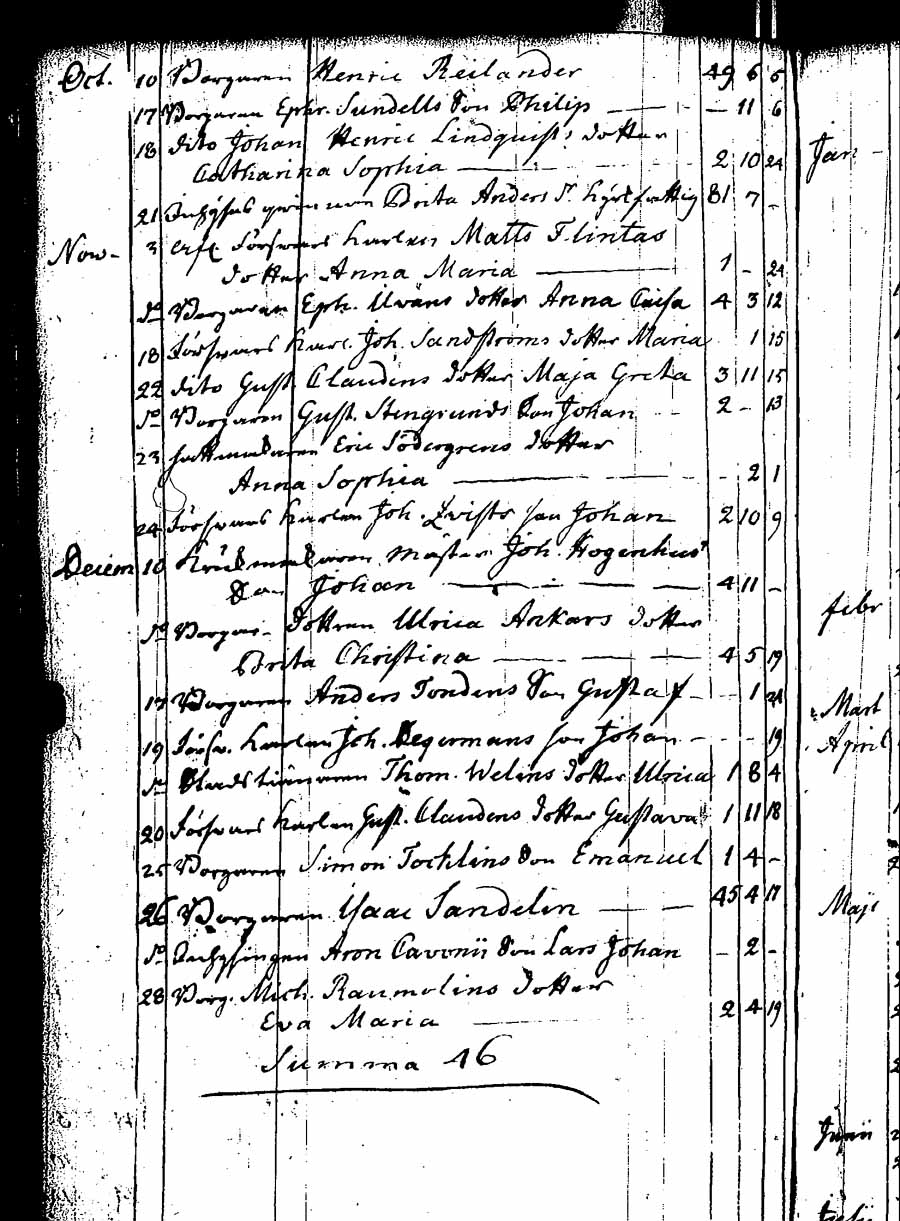 Oct. 10 Borgaren Henric Reilander 49 6 6
17 Borgaren Ephr. Sundells Son Philip — — 11 6
18 dito Johan Henric Lindquists dotter
Catharina Sophia — 2 10 24
21 Inhyses qwinnan Brita Anders Dr. 81 7 -
Nov. 3 Förswars Karlen Matts Flintas
dotter Anna Maria — 1 - 24
do Borgaren Eph. Uwäns dotter Anna Caisa 4 3 12
18 Förswars Karl. Joh. Sandströms dotter Maria 1 15
22 dito Gust. Claudens dotter Maja Greta 3 11 15
do Borgaren Gust. Stengrunds Son Johan 2 - 13
23 Hattmakaren Eric Södergrens dotter
Anna Sophia — - 2 1
24 Förswars Karlen Joh. Qvists son Johan 2 10 9
Decem 10 Krukmakaren Mäster Joh. Hogenhus
Son Johan — 4 11 -
do Borgar- dottren Ulrica Ankars dotter
Brita Christina — 4 5 19
17 Borgaren Anders Tondens Son Gustaf - 1 21
19 Försw. Karlen Joh. Segermans son Johan - - 19
do Stadstiänaren Thom. Welins dotter Ulrica 1 8 4
20 Förswars Karlen Gust. Claudens dotter Gustava 1 11 18
25 Borgaren Simon Tocklins Son Emanuel 1 4 -
26 Borgaren Isaac Sandelin — 45 4 17
do Inhysingen Aron Cavonii Son Lars Johan - 2 -
28 Borg. Mich. Raumolins dotter
Eva Maria — 2 4 19
Summa 46
Jan
febr
Mart
April
Maji
Junii